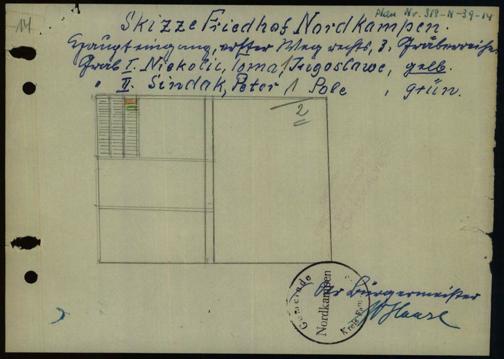 Plan Nr. 319-N-39-14
14
Skizze Friedhof Nordkampen.
Haupteingang, erster Weg rechts, 3. Gräberreihe
Grab I. Niekolic, Toma / Jugoslawe, gelb.
" II. Sindak, Peter / Pole, grün.
2
Gemeinde
Nordkampen
Der Bürgermeister
Haase